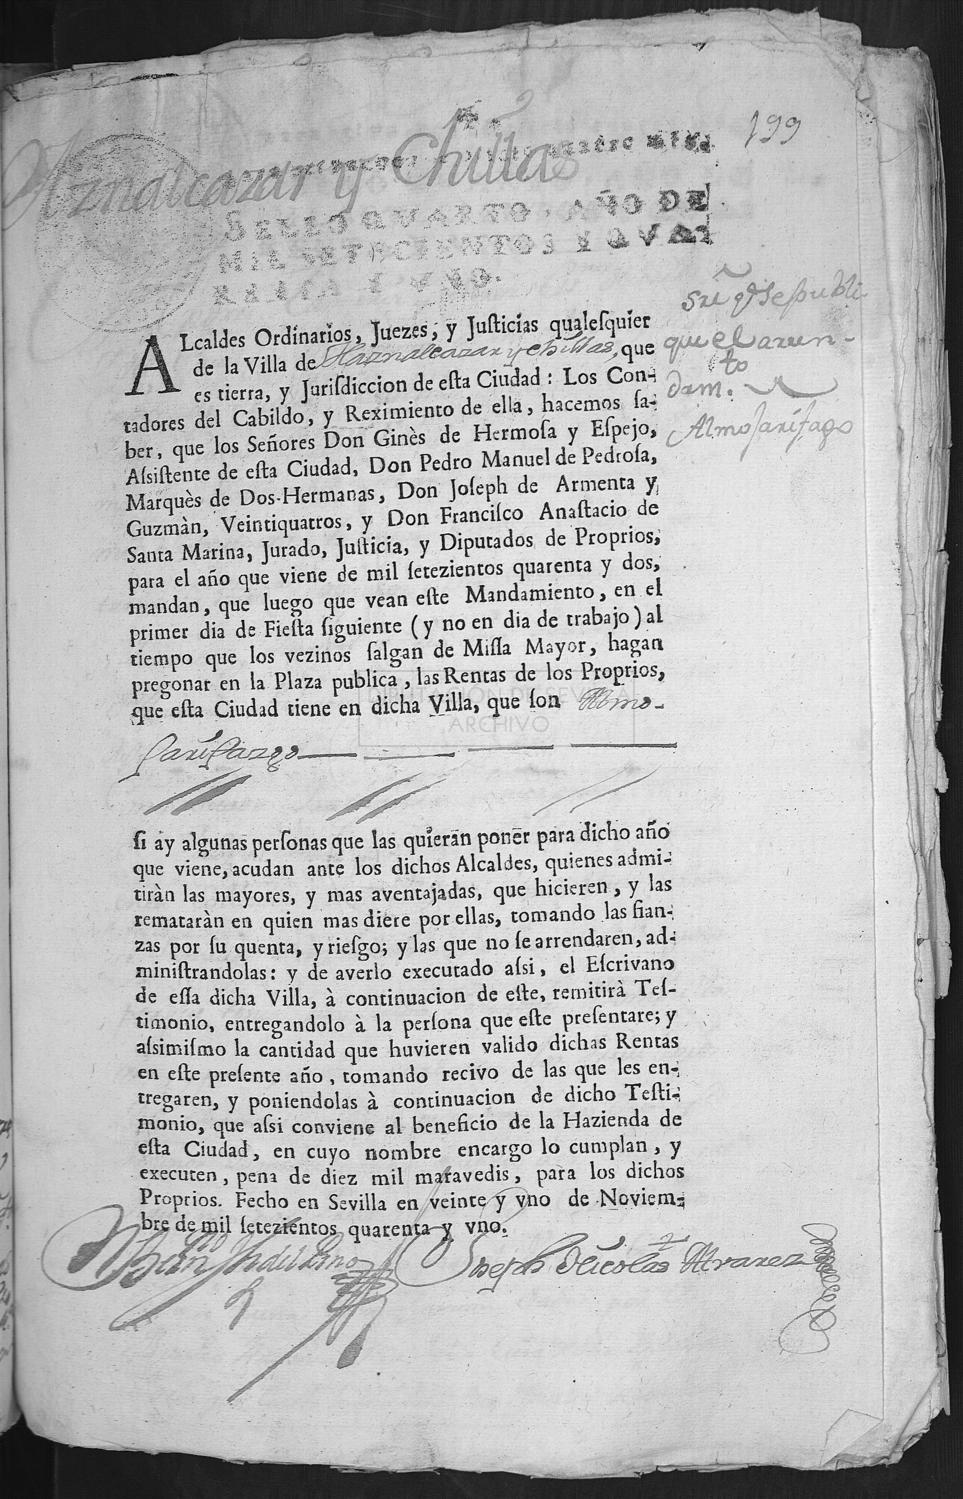 199
Aznalcazar y Chillas
SELLO QVARTO, AÑO DE
MIL SETECIENTOS Y QVA-
RENTA Y VNO.
que se publi
que el arren-
dam.to
Almojarifazgo
ALcaldes Ordinarios, Juezes, y Justicias qualesquier
de la Villa de Haznalcazar y chillas, que
es tierra, y Jurisdiccion de esta Ciudad: Los Con-
tadores del Cabildo, y Reximiento de ella, hacemos sa-
ber, que los Señores Don Ginès de Hermosa y Espejo,
Assistente de esta Ciudad, Don Pedro Manuel de Pedrosa,
Marquès de Dos-Hermanas, Don Joseph de Armenta y
Guzmàn, Veintiquatros, y Don Francisco Anastacio de
Santa Marina, Jurado, Justicia, y Diputados de Proprios,
para el año que viene de mil setezientos quarenta y dos,
mandan, que luego que vean este Mandamiento, en el
primer dia de Fiesta siguiente (y no en dia de trabajo) al
tiempo que los vezinos salgan de Missa Mayor, hagan
pregonar en la Plaza publica, las Rentas de los Proprios,
que esta Ciudad tiene en dicha Villa, que son Almo-
jarifazgo
DIPUTACIÓN DE SEVILLA
ARCHIVO
si ay algunas personas que las quieran poner para dicho año
que viene, acudan ante los dichos Alcaldes, quienes admi-
tiràn las mayores, y mas aventajadas, que hicieren, y las
remataràn en quien mas diere por ellas, tomando las fian-
zas por su quenta, y riesgo; y las que no se arrendaren, ad-
ministrandolas: y de averlo executado assi, el Escrivano
de essa dicha Villa, à continuacion de este, remitirà Tes-
timonio, entregandolo à la persona que este presentare; y
assimismo la cantidad que huvieren valido dichas Rentas
en este presente año, tomando recivo de las que les en-
tregaren, y poniendolas à continuacion de dicho Testi-
monio, que assi conviene al beneficio de la Hazienda de
esta Ciudad, en cuyo nombre encargo lo cumplan, y
executen, pena de diez mil maravedis, para los dichos
Proprios. Fecho en Sevilla en veinte y vno de Noviem-
bre de mil setezientos quarenta y vno.
Joseph Nicolas Alvarez